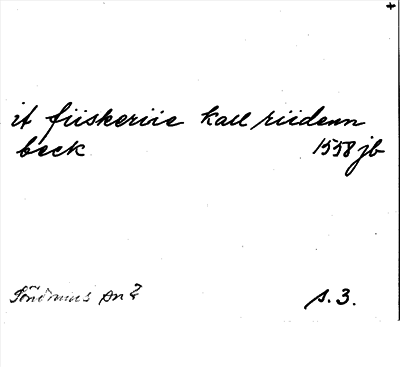 it fiiskeriie kall riidenn
beck 1558 jb
s. 3.